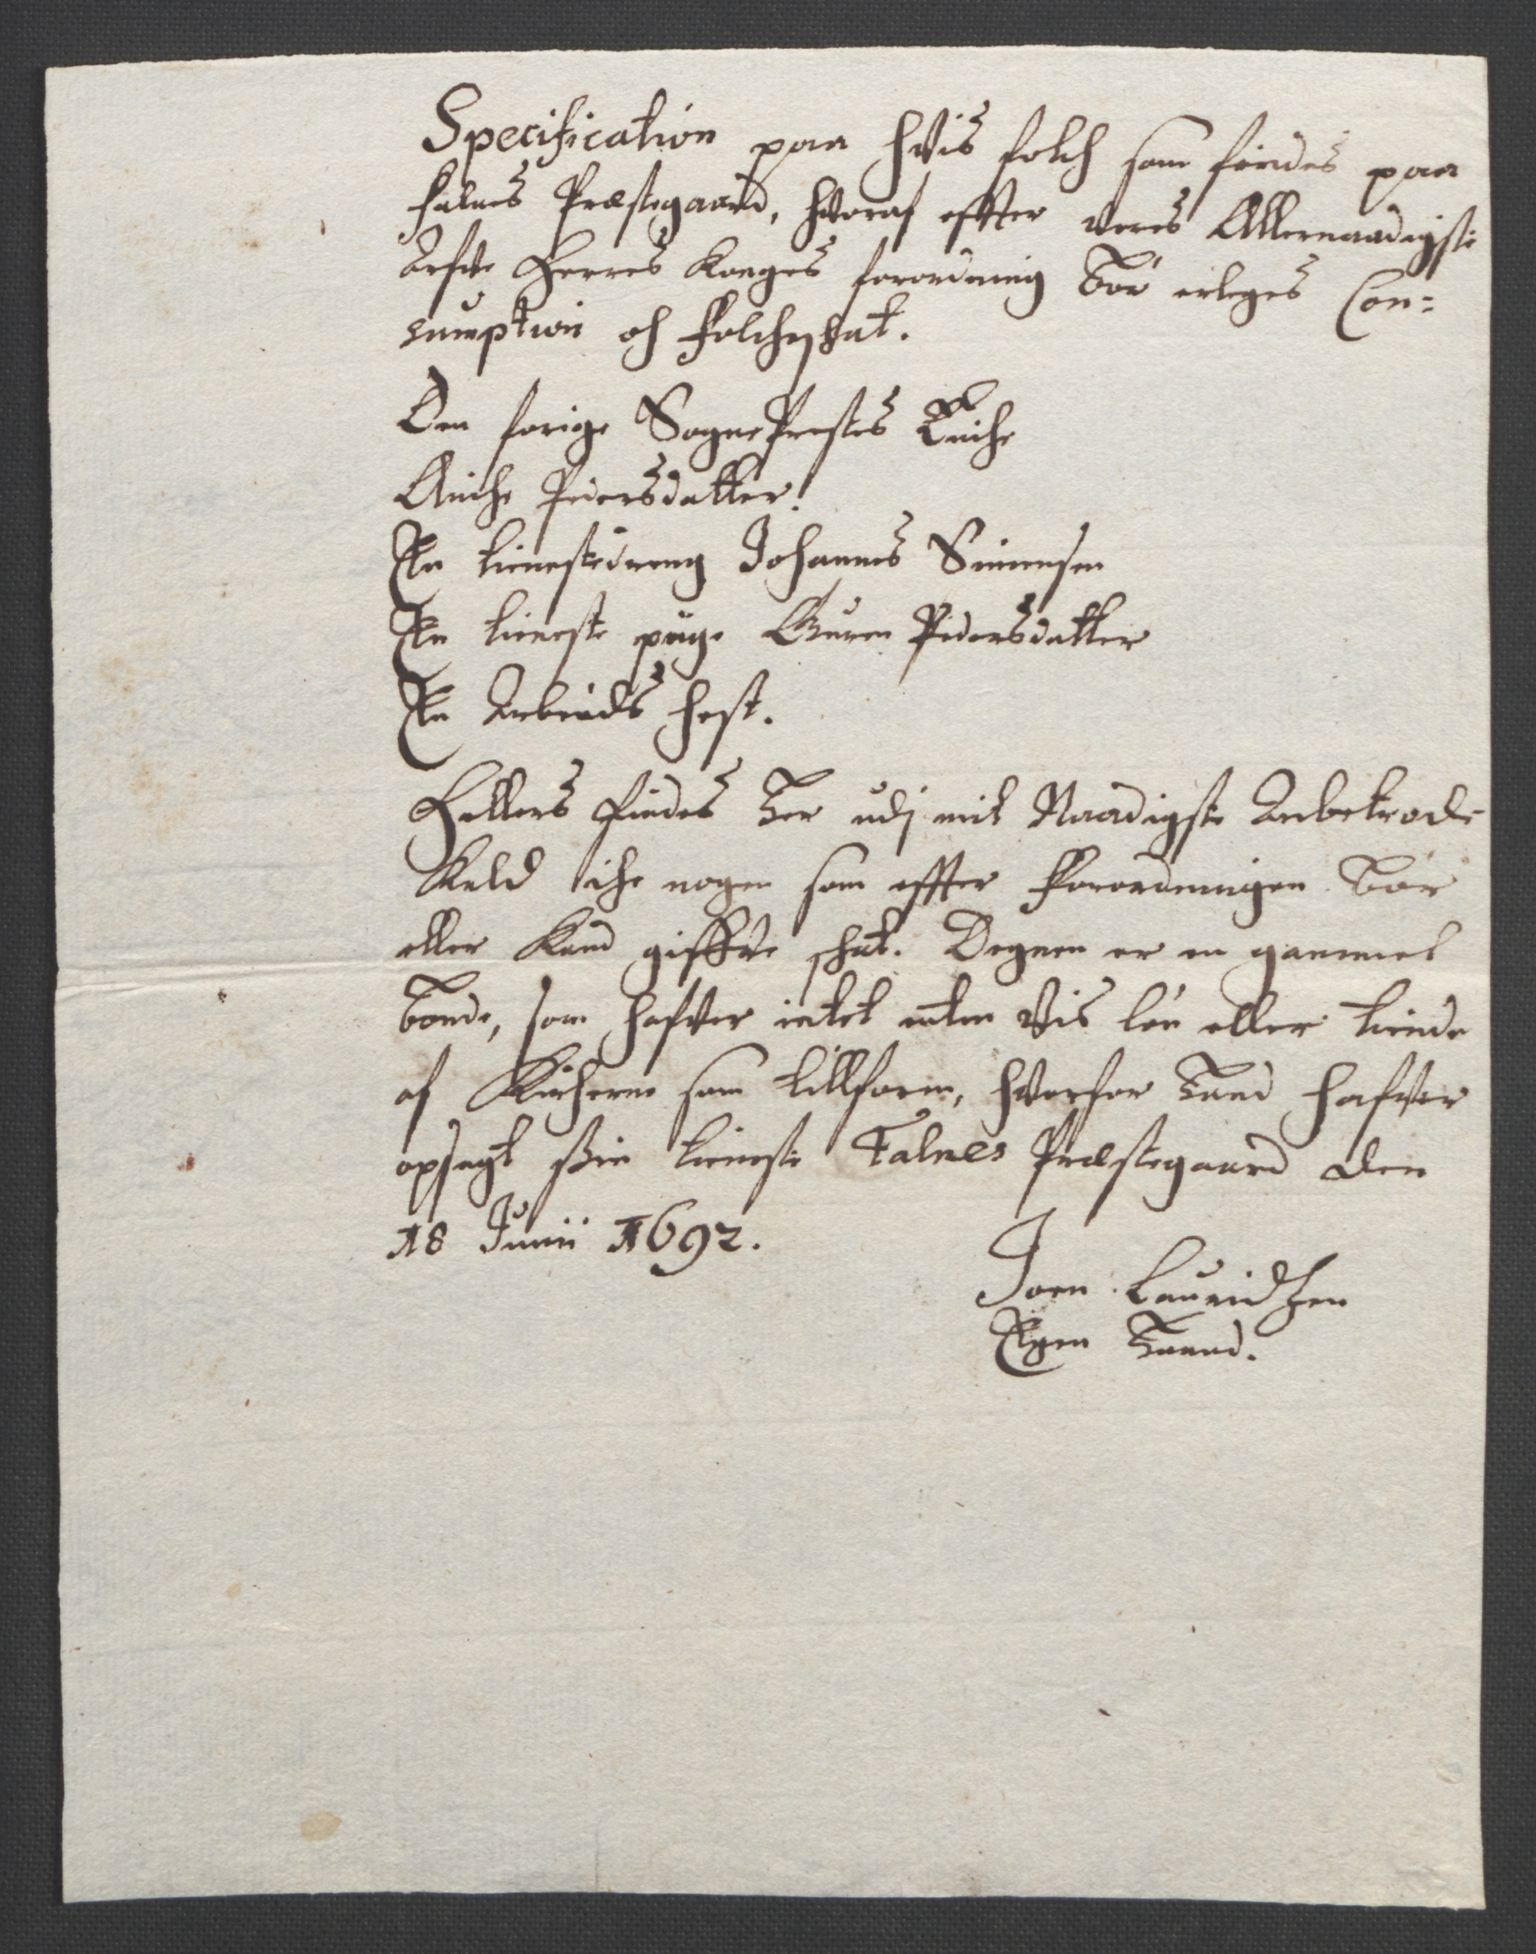 Specification paa hvis folch som findes paa
Falnes Præstegaard, hvoraf effter vores Allernaadigste
Arfve Herres Konges forordning bør erleges Con=
sumption och Folcheschat.
Den forige SognePrestes Encke
Anche Pedersdatter.
En tienestedreng Johannes Simensen
En tieneste piige Guren Pedersdatter
En Arbeids hest.
Hellers findes her udj mit Naadigste Anbetrode
Kald iche nogen som effter Forordningen bør
eller kand giffve schat. Degnen er en gammel
bonde, som hafver intet enten vis løn eller tiende
af Kircherne som tillforn, hvorfor hand hafver
opsagt sin tieneste Falnes Præstegaard den
18 Junii 1692.
Joen Lauridtzen
Egen haand.